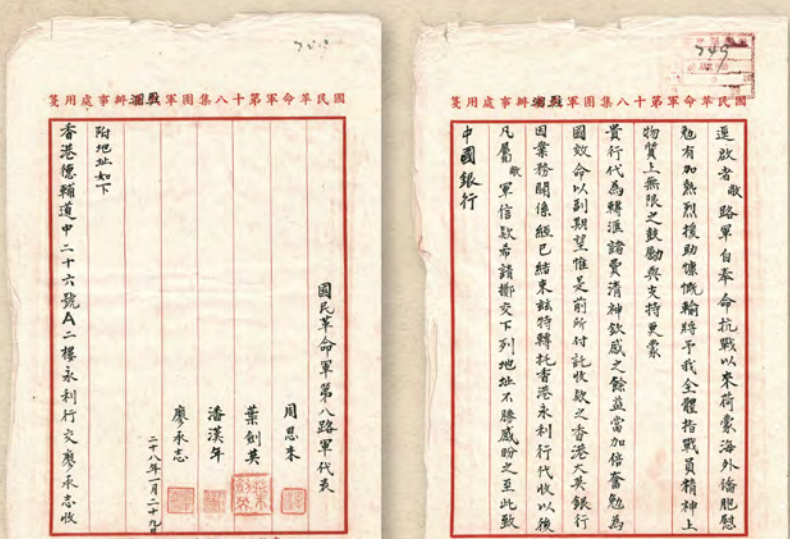 749
國民革命軍第十八集團軍駐湘辦事處用箋
逕啟者敝路軍自奉命抗戰以來荷蒙海外僑胞慰
勉有加熱烈援助慷慨輸將予我全體指戰員精神上
物質上無限之鼓勵與支持更蒙
貴行代為轉滙諸費清神欽感之餘益當加倍奮勉為
國效命以副期望惟是前所付託收款之香港大英銀行
因業務關係經已結束茲特轉托香港永利行代收以後
凡屬敝軍信款希請擲交下列地址不勝感盼之至此致
中國銀行
國民革命軍第十八集團軍駐湘辦事處用箋
國民革命軍第八路軍代表
周恩來
葉劍英
潘漢年
廖承志
二十八年一月二十九日
附地址如下
香港德輔道中二十六號A二樓永利行交廖承志收